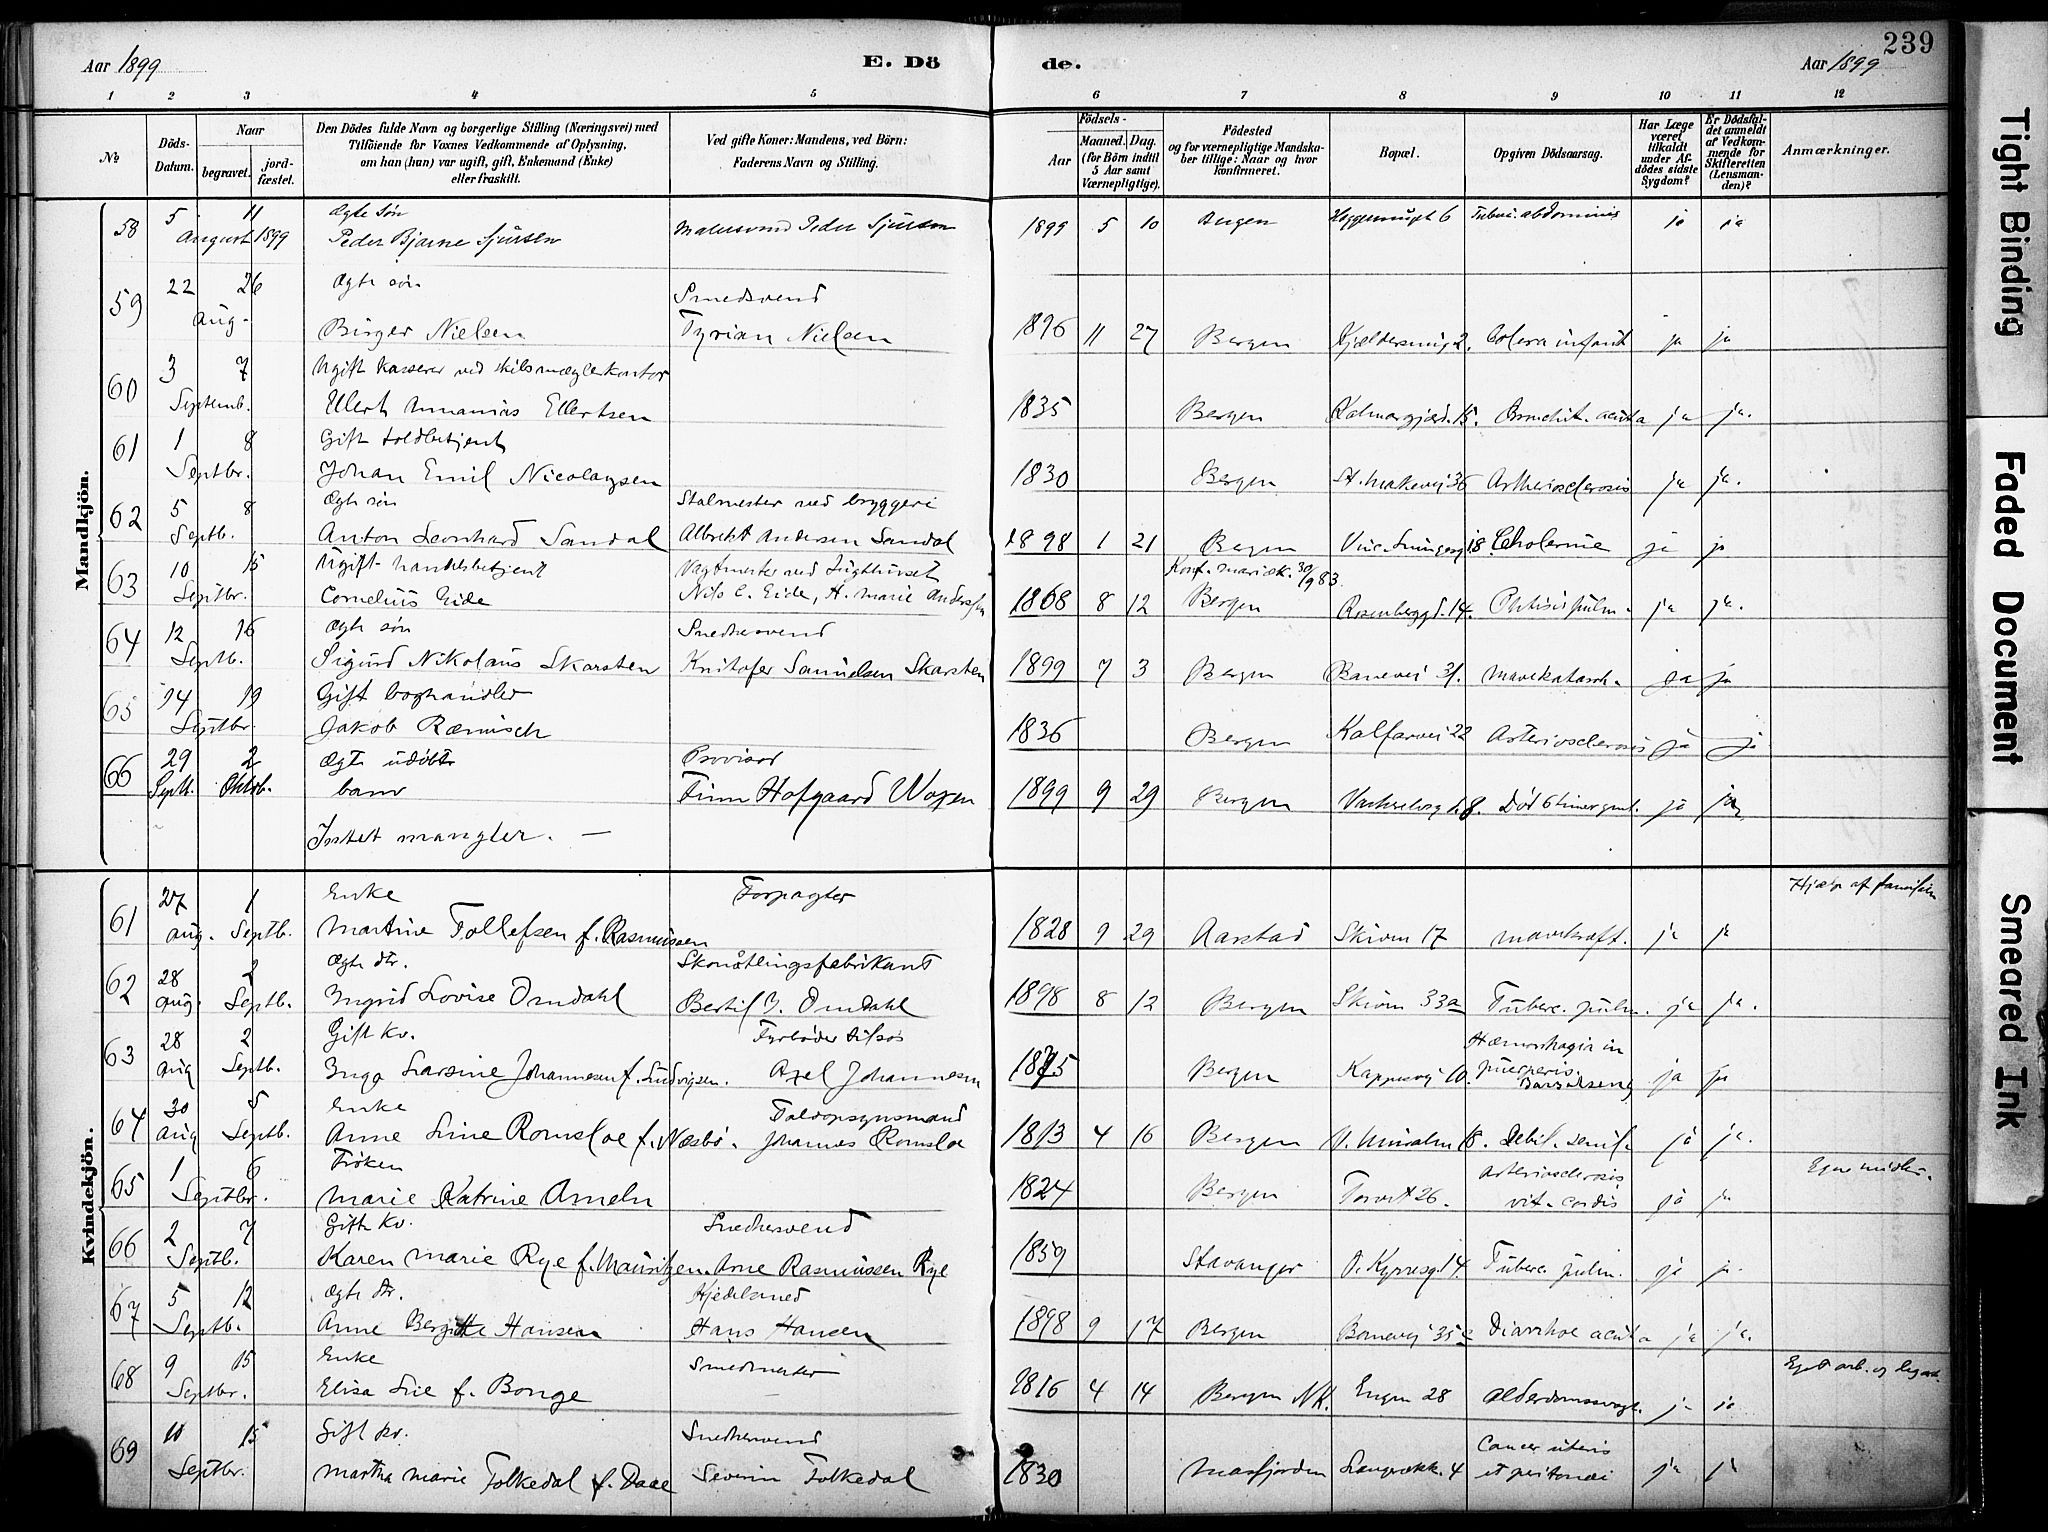 239
Aar 1899
E. Dö
de.
Aar 1899
1 2 3 4 5 6 7 8 9 10 11 12
No
Döds-Datum.
Naar
begravet.
jordfæstet.
Den Dödes fulde Navn og borgerlige Stilling (Næringsvei) med
Tilföiende for Voxnes Vedkommende af Oplysning,
om han (hun) var ugift, gift, Enkemand (Enke)
eller fraskilt.
Ved gifte Koner: Mandens, ved Börn:
Faderens Navn og Stilling.
Födsels-
Aar
Maaned. Dag.
(for Börn indtil
5 Aar samt
Værnepligtige).
Födested
og for værnepligtige Mandskaber tillige: Naar og hvor
konfirmeret.
Bopæl.
Opgiven Dödsaarsag.
Har Læge
været
tilkaldt
under Afdödes sidste
Sygdom?
Er Dödsfaldet anmeldt
af Vedkommende for
Skifteretten
(Lensmanden)?
Anmærkninger.
Mandkjön.
58 5 11 August 1899 Ægte søn
Peder Bjarne Sjursen Malersvend Peder Sjursen 1899 5 10 Bergen 6 Tuberc. abdominis ja ja
59 22 26 Aug. Ægte søn Smedsvend
Birger Nielsen Tyrian Nielsen 1896 11 27 Bergen 2. Colera infant ja ja
60 3 7 Septemb. Ugift kasserer ved skibsmæglerkontor
Ellert Annanias Ellertsen 1835 Bergen Kalmargjærd. 15. Bronchit. acuta ja ja.
61 1 8 Septbr. Gift toldbetjent
Johan Emil Nicolaysen 1830 Bergen St. Markevej 36 Artheriosclerosis ja ja.
62 5 8 Septb. Ægte søn Stalmester ved bryggeri
Anton Leonhard Sandal Albrekt Andersen Sandal 1898 1 21 Bergen 18. Cholerine ja ja
63 10 15 Septbr. Ugift handelsbetjent Vagtmester ved Tugthuset Konf. Mariæk. 30/9 83
Cornelius Eide Nils C. Eide, H. Marie Anderssen 1868 8 12 Bergen Rosenberggd. 14. Phtisis pulm. ja ja.
64 12 16 Septb. Ægte søn Snedkersvend
Sigurd Nikolaus Skarsten Kristofer Samuelsen Skarsten 1899 7 3 Bergen Banevei 31. Mavekatarrh. ja ja
65 14 19 Septbr. Gift boghandler
Jakob Ræmisch 1836 Bergen Kalfarvei 22 Arteriosclerosis ja ja
66 29 2 Septb. Oktob. Ægte udøbt Provisor
barn Finn Hofgaard Woxen 1899 9 29 Bergen 8. Død 6 timer gml. ja ja
Intet mangler. —
Kvindekjön.
61 27 1 Aug. Septb. Enke Forpagter Hjælp af familien
Martine Tollefsen f. Rasmussen 1828 9 29 Aarstad Skivm 17 Mavekræft. ja ja
62 28 2 Aug. Septb. Ægte dtr. Skonåtlingsfabrikant
Ingrid Lovise Omdahl Bertil J. Omdahl 1898 8 12 Bergen Skivm 33a Tuberc. pulm. ja ja.
63 28 2 Aug Septb. Gift kv. Fyrbøder tilsøs Hæmorrhagia in
Inga Larsine Johannesen f. Ludvigsen. Axel Johannesen 1875 Bergen 10. puerperis. Barselseng ja ja
64 30 5 Aug Septb. Enke Toldopsynsmand
Anne Line Romsloe f. Næsbø. Johannes Romsloe 1813 4 16 Bergen 18. Debil. senil. ja ja.
65 1 6 Septbr. Frøken Arteriosclerosis Egne midler.
Marie Katrine Ameln 1824 Bergen Torvet 26. vit. cordis ja ja
66 2 7 Septb. Gift kv. Snedkersvend
Karen Marie Rye f. Mauritzen. Arne Rasmussen Rye 1859 Stavanger O. Kyrresg. 14. Tuberc. pulm. ja ja.
67 5 12 Septb. Ægte dtr. Kjedelsmed
Anne Bergitte Hansen Hans Hansen 1898 9 17 Bergen 35a Diarrhoe acuta ja ja.
68 9 15 Septbr. Enke Smedmester Eget arb. og legat.
Elisa Lie f. Bonge 1816 4 14 Bergen NK. Engen 28 Alderdomssvagh. ja ja
69 10 15 Septbr. Gift kv. Snedkersvend Cancer uteris
Martha Marie Folkedal f. Daae Severin Folkedal 1830 Masfjorden 4 et peritonæi ja ja
Tight Binding
Faded Document
Smeared Ink